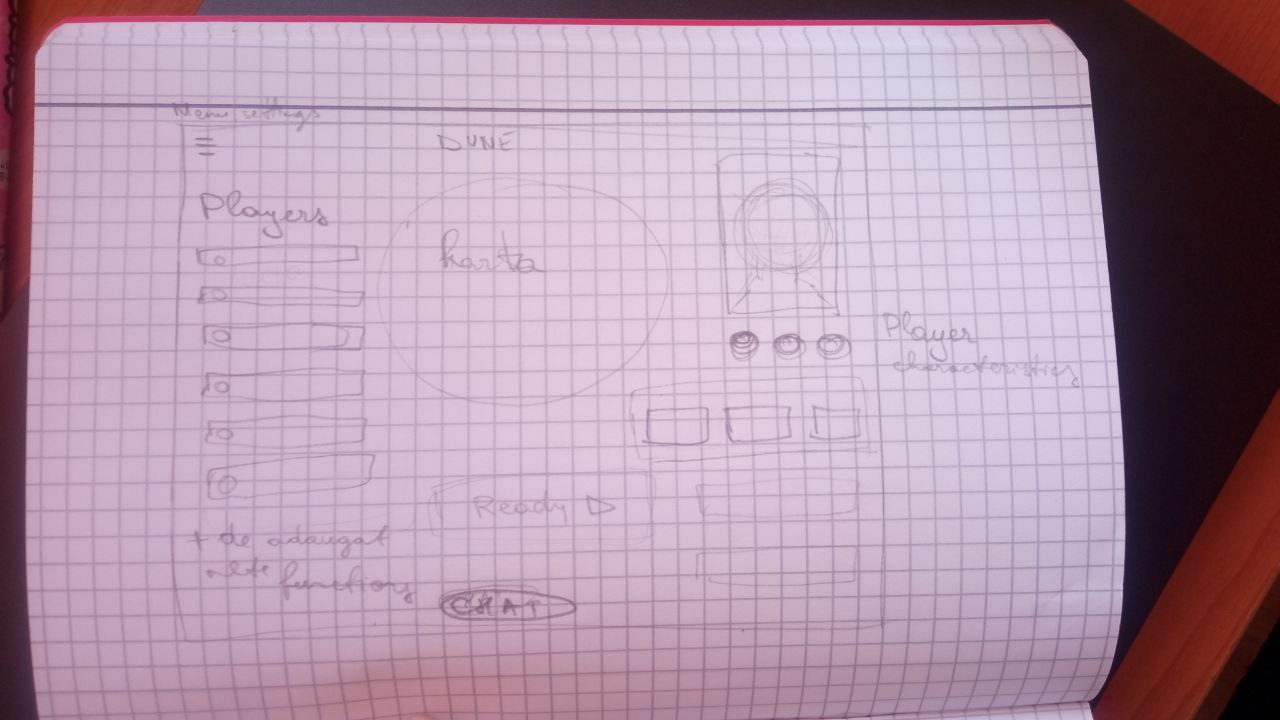 Menu settings
DUNE
Players
harta
Player
characteristics
Ready
+ de adaugat
alte functions
CHAT